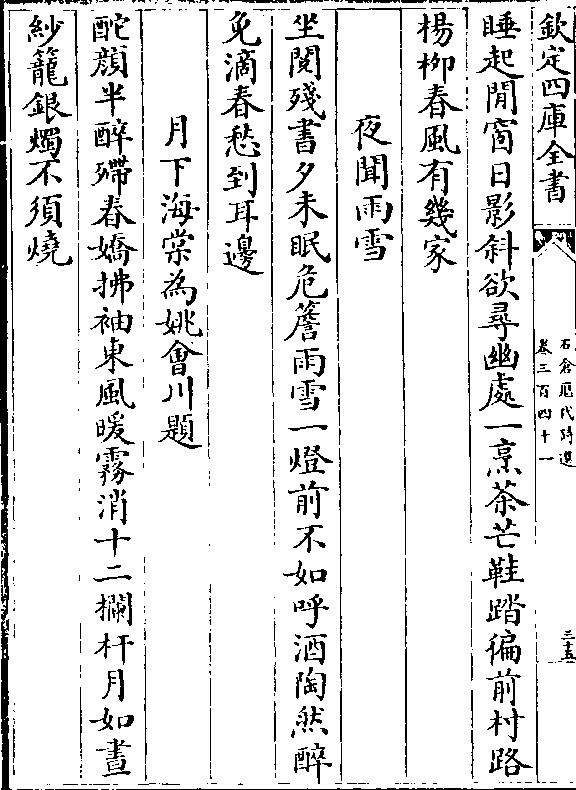 欽定四庫全書
石倉歷代詩選
卷三百四十一
三十五
睡起閒窗日影斜欲尋幽處一烹茶芒鞋踏徧前村路
楊柳春風有幾家
夜聞雨雪
坐閲殘書夕未眠危簷雨雪一燈前不如呼酒陶然醉
免滴春愁到耳邊
月下海棠為姚會川題
酡顔半醉殢春嬌拂袖東風暖霧消十二欄杆月如晝
紗籠銀燭不須燒